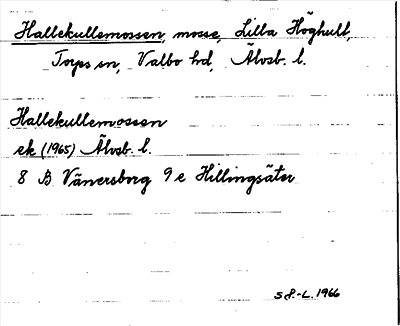 Hallekullemossen, mosse, Lilla Höghult,
Torps sn, Valbo hd, Älvsb. l.
Hallekullemossen
ek (1965) Älvsb. l.
8 B Vänersborg 9 e Hillingsäter
S F.-L. 1966